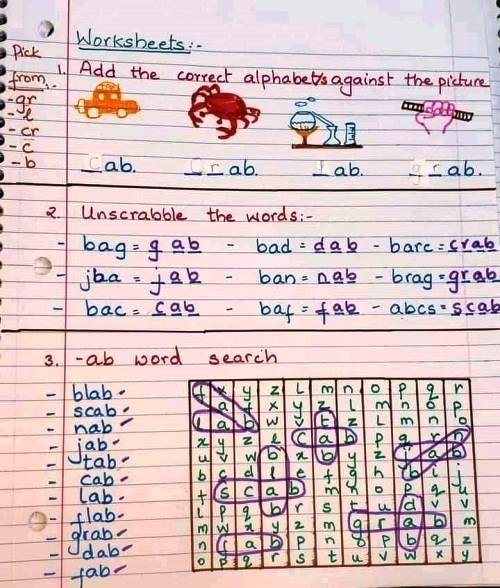 Worksheets:-
Pick
from:-
-gr
-l
-cr
-c
-b
1. Add the correct alphabet/s against the picture
cab. crab. lab. grab.
2. Unscrabble the words:-
- bag = gab - bad = dab - barc = crab
- jba = jab - ban = nab - brag = grab
- bac = cab - baf = fab - abcs = scab
3. -ab word search
- blab
- scab
- nab
- jab
- tab
- cab
- lab
- flab
- grab
- dab
- fab
f x y z l m n o p q r
a f x y z l m n o p
l a b w v t z l m n o
x y z l c a b p q r n
u v w b x b y z j a b
b c d l e f g h b i j
t s c a b m o p q
l p q b r s u d v
m w x y z m g r a b m
n f a b p n o p b q z
o p q r s t u v w x y